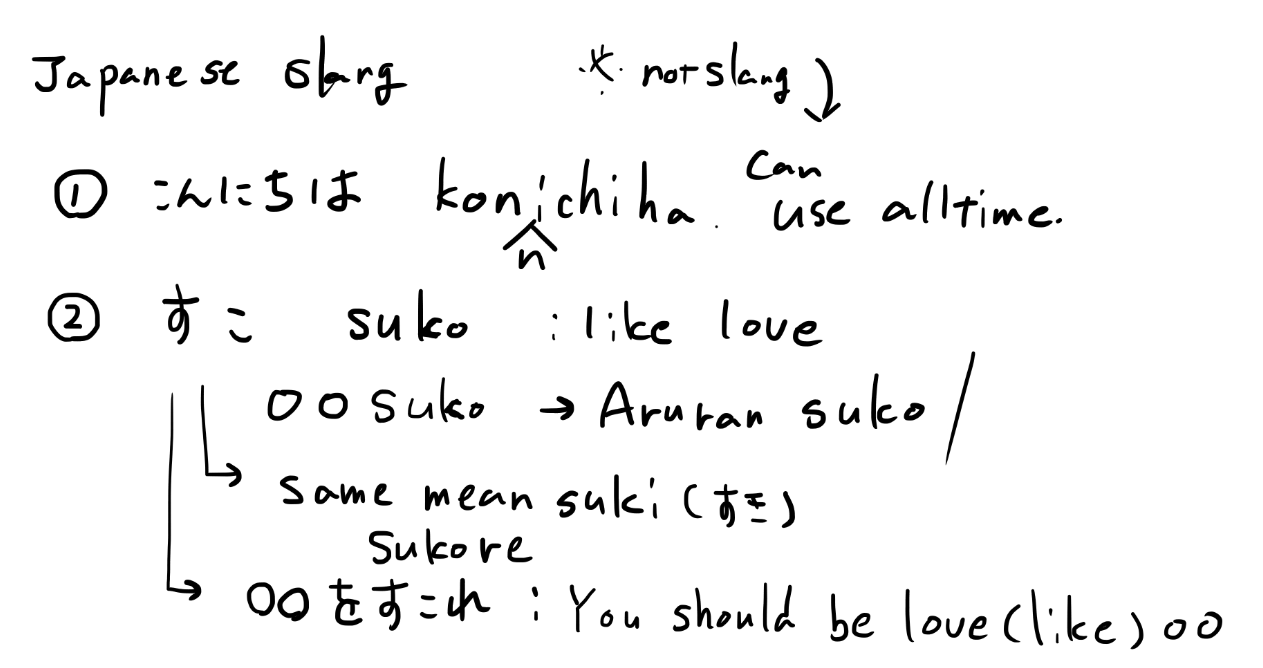 Japanese slang ※ not slang
① こんにちは konnichiha. can use alltime.
② すこ suko : like love
〇〇 suko → Aruran suko /
→ same mean suki (すき)
sukore
→ 〇〇をすこれ : You should be love (like) 〇〇